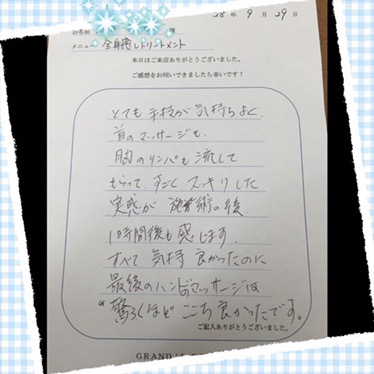 28年 9月 29日
お名前 様
メニュー 全身揉しトリートメント
本日はご来店ありがとうございました。
ご感想をお伺いできましたら幸いです!
とても手技が気持ちよく、
首のマッサージも、
胸のリンパも流して
もらって すごく スッキリした
実感が 施術の後、
1時間後も感じます。
すべて 気持 良かったのに
最後のハンドのマッサージは
驚ろくほど ここち良かったです。
ご記入ありがとうございました。
GRAND